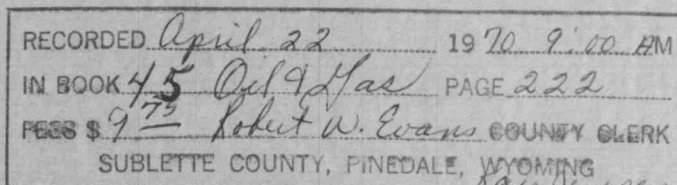 RECORDED April 22 1970 9:00 AM
IN BOOK 45 Oil & Gas PAGE 222
FEES $ 9 75 Robert W. Evans COUNTY CLERK
SUBLETTE COUNTY, PINEDALE, WYOMING